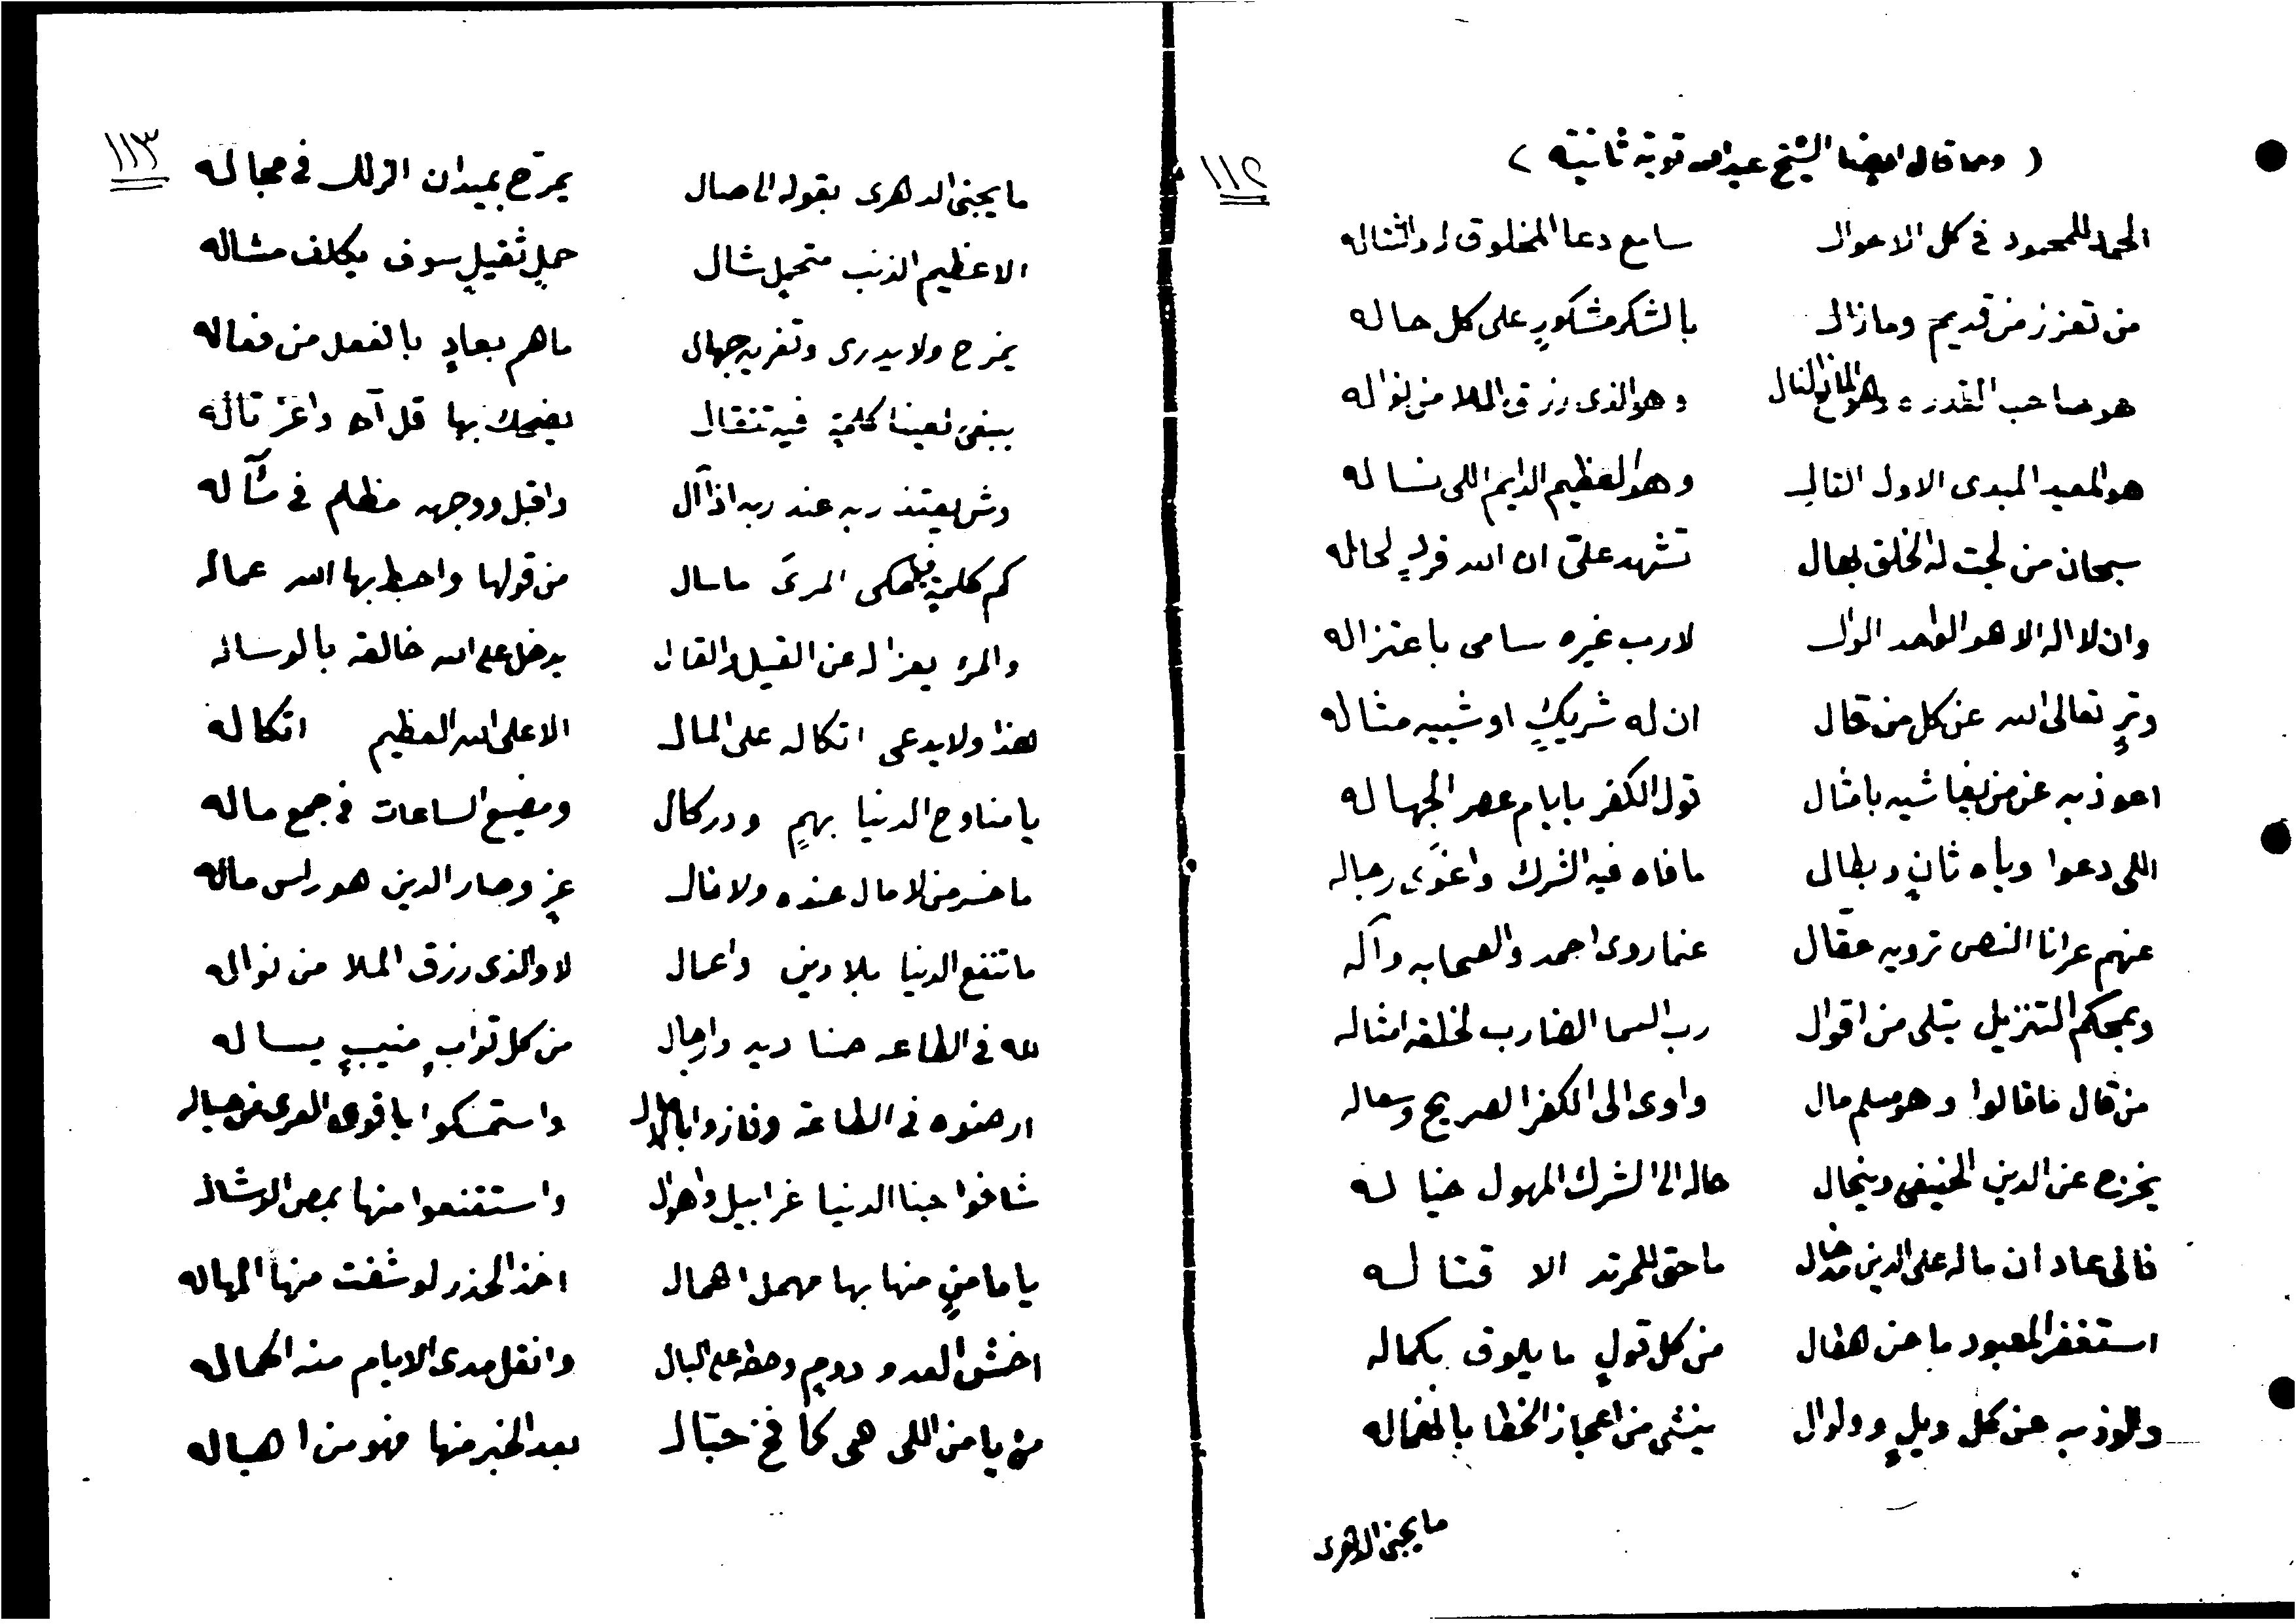 ١١٢
( ومما قال ايضا الشيخ عبدالله توبة ثانية )
الحمد للمحمود في كل الاحوال سامع دعا المخلوق له والثناله
من تعزز من قديم وما زال بالشكر مشكورٍ على كل حاله
هو صاحب القدره وهو المانح النال وهو الذى رزق الملا من نواله
هو المعيد المبدى الاول التال وهو العظيم الدايم اللى نساله
سبحان من لجت له الخلق بهال تشهد على ان الله فردٍ لحاله
وان لا اله الا هو الواحد الوال لا رب غيره سامى باعتزاله
وترٍ تعالى الله عن كل من قال ان له شريكٍ او شبيه مثاله
اعوذ به عن من بغا شيه بامثال قول الكفر بايام عصر الجهاله
اللى دعوا وياه ثانٍ وبطال ما فاه فيه الشرك واغوى رجاله
عنهم عرانا النص ترويه عقال عنما روى احمد والصحابه وآله
وبمحكم التنزيل يتلى من اقوال رب السما الضارب لخلقه امثاله
من قال ما قالوا وهو مسلم مال واوى الى الكفر الصريح وسعاله
يخرج عن الدين الحنيفى وينحال حاله الى الشرك المهول خياله
فالى عاد ان ماله على الدين مدخال ما حق للمرتد الا قتاله
استغفر المعبود ما حن هطال من كل قولٍ ما يلوق بكماله
وللوذ به عن كل ويلٍ وولوال ينشى من اعجاز الخطا بانفماله
ما يجنى الدهرى
١١٣
ما يجنى الدهرى بقوله الى صال يمرح بميدان الزلل في مجاله
الا عظيم الذنب متحمل شال حملٍ ثقيلٍ سوف يكلف مشاله
يمزح ولا يدرى وتغريه جهال ما هم بعادٍ بالفعل من فعاله
يبغى لعينا كلمةٍ فيه تنقال يضحك بها قل آه واعز تاله
وش يعتذر به عند ربه اذا آل واقبل ووجهه مظلم في مثآله
كم كلمةٍ المرئ ما سال من قولها واحبط بها الله عماله
والمرؤ يعزاله عن القيل والقال يدخل على الله خالقه بالوساله
هذا ولا يدعى اتكاله على المال الا على الله العظيم اتكاله
يا مناوح الدنيا بهمٍ ودركال ومضيع الساعات في جمع ماله
ما خسر من لا مال عنده ولا نال عزٍ وصار الدين هو راس ماله
ما تنفع الدنيا بلا دين واعمال لا والذى رزق الملا من نواله
لله في الطاعه صناديد وارجال من كل توابٍ منيبٍ يساله
ارهنوه في الطاعة وفازوا واستمسكوا باقوى العرى من حباله
شافوا حبنا الدنيا غرابيل واهوال واستقنعوا منها بمص الوشاله
يا مامنٍ منها بها مهمل اهمال اخذ الحذر لو شفت منها المهاله
اخش العدو دومٍ وحطه على البال وانقل مدى الايام منه الحماله
من يامن اللى هى كما فخ حبال بعد الخبر منها فهو من اهباله